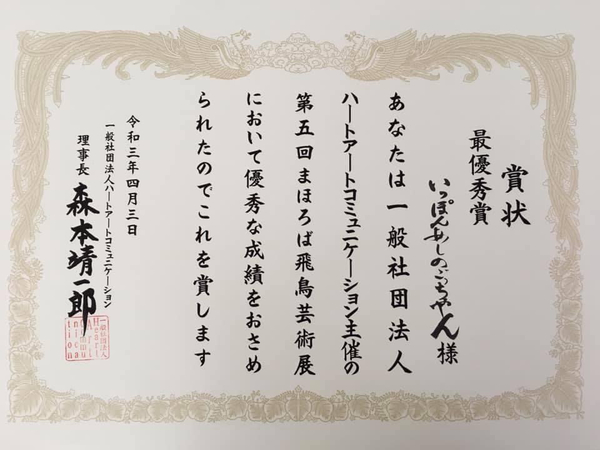 賞状
最優秀賞
いっぽんあしのごうちゃん様
あなたは一般社団法人
ハートアートコミュニケーション主催の
第五回まほろば飛鳥芸術展
において優秀な成績をおさめ
られたのでこれを賞します
令和三年四月三日
一般社団法人ハートアートコミュニケーション
理事長 森本靖一郎
一般社団法人
Heart
Art
Commu
nica
tion